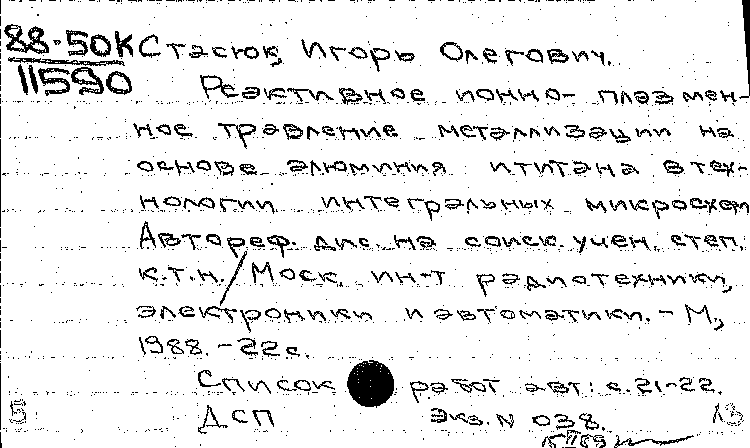 88-50К Стасюк, Игорь Олегович.
11590 Реактивное ионно-плазмен-
ное травление металлизации на
основе алюминия и титана в тех-
нологии интегральных микросхем
Автореф. дис. на соиск. учен. степ.
к.т.н. / Моск. ин-т радиотехники,
электроники и автоматики. - М.,
1988. - 22 с.
Список работ авт.: с. 21-22.
5 ДСП Экз. N 038. 13